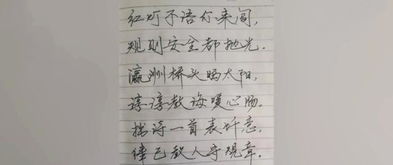 红灯不语行来闯,
规则安全都抛光.
瀛洲桥头晒太阳,
谆谆教诲暖心肠.
拙诗一首表忏意,
律己教人守规章.